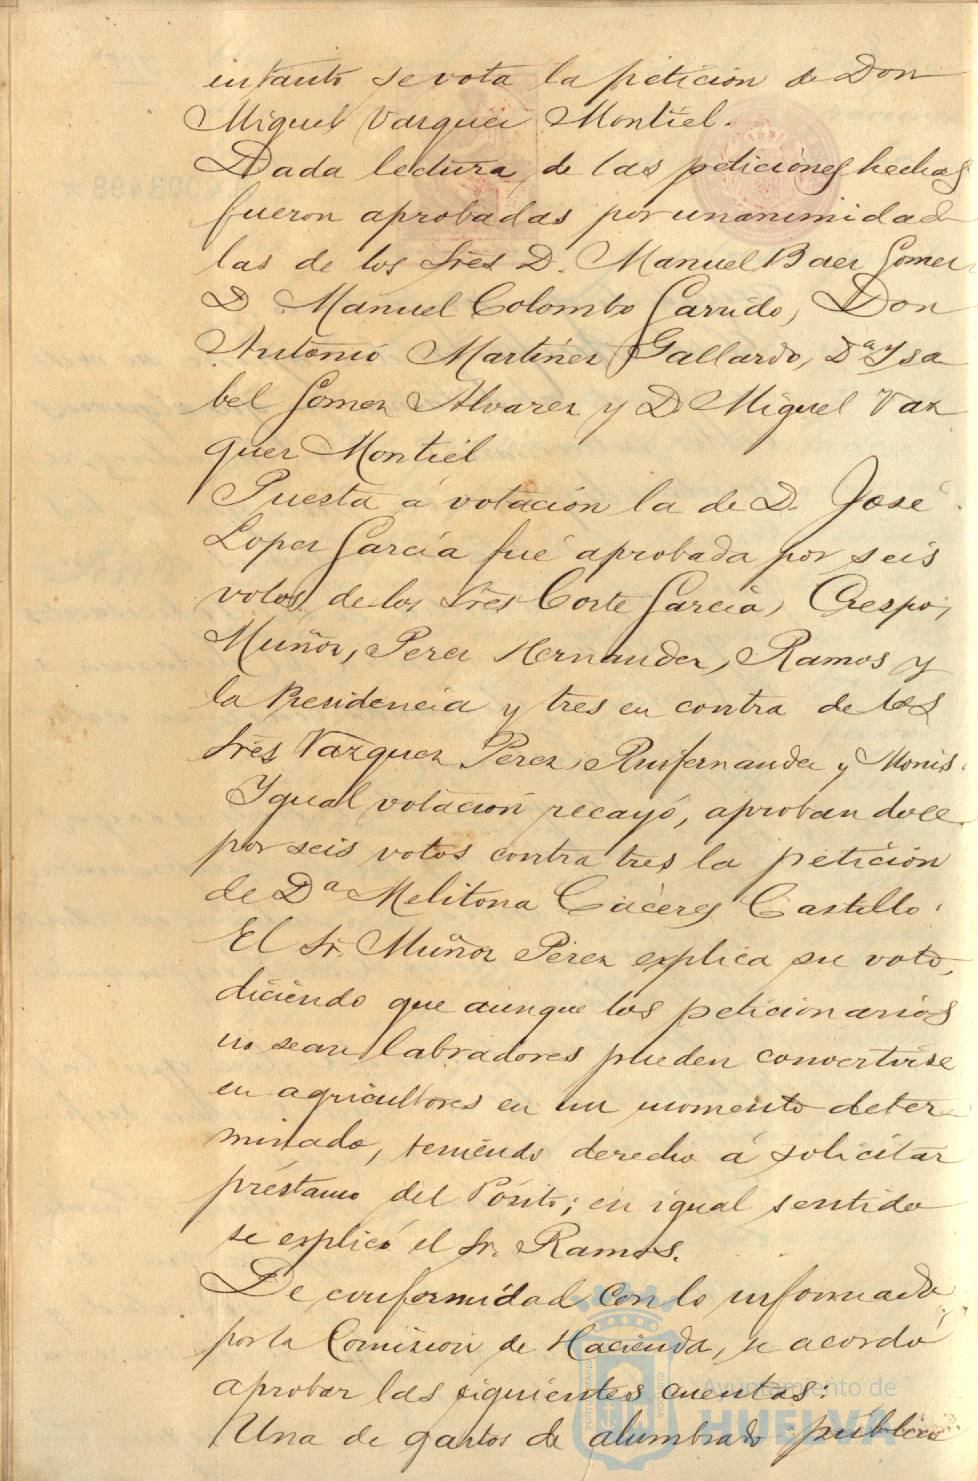 intanto se vota la petición de Don
Miguel Vazquez Montiel.
Dada lectura de las peticiones hechas
fueron aprobadas por unanimidad
las de los Sres D. Manuel Baez Gomez
D Manuel Colombo Garrido, Don
Antonio Martinez Gallardo, Dª Ysa
bel Gomez Alvarez y D Miguel Vaz
quez Montiel
Puesta á votación la de D. José
Lopez García fué aprobada por seis
votos de los Sres Corte García, Crespo,
Muñoz, Perez Hernandez, Ramos y
la Presidencia y tres en contra de los
Sres Vazquez Perez, Ruifernandez y Monis.
Ygual votación recayó, aprobandose
por seis votos contra tres la petición
de Dª Melitona Cáceres Castillo.
El Sr. Muñoz Pérez explica su voto,
diciendo que aunque los peticionarios
no sean labradores pueden convertirse
en agricultores en un momento deter
minado, teniendo derecho á solicitar
préstamo del Pósito; en igual sentido
se explicó el Sr. Ramos.
De conformidad con lo informado
por la Comision de Hacienda, se acordó
aprobar las siguientes cuentas:
Una de gastos de alumbrado público
Ayuntamiento de
HUELVA